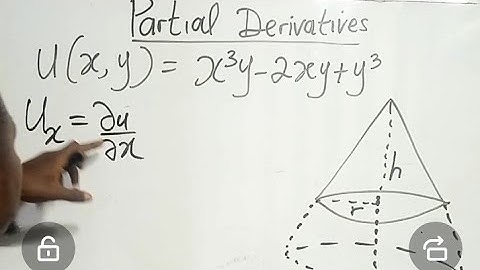 Partial Derivatives
U(x,y) = x³y-2xy+y³
Uₓ = ∂u/∂x
h
r